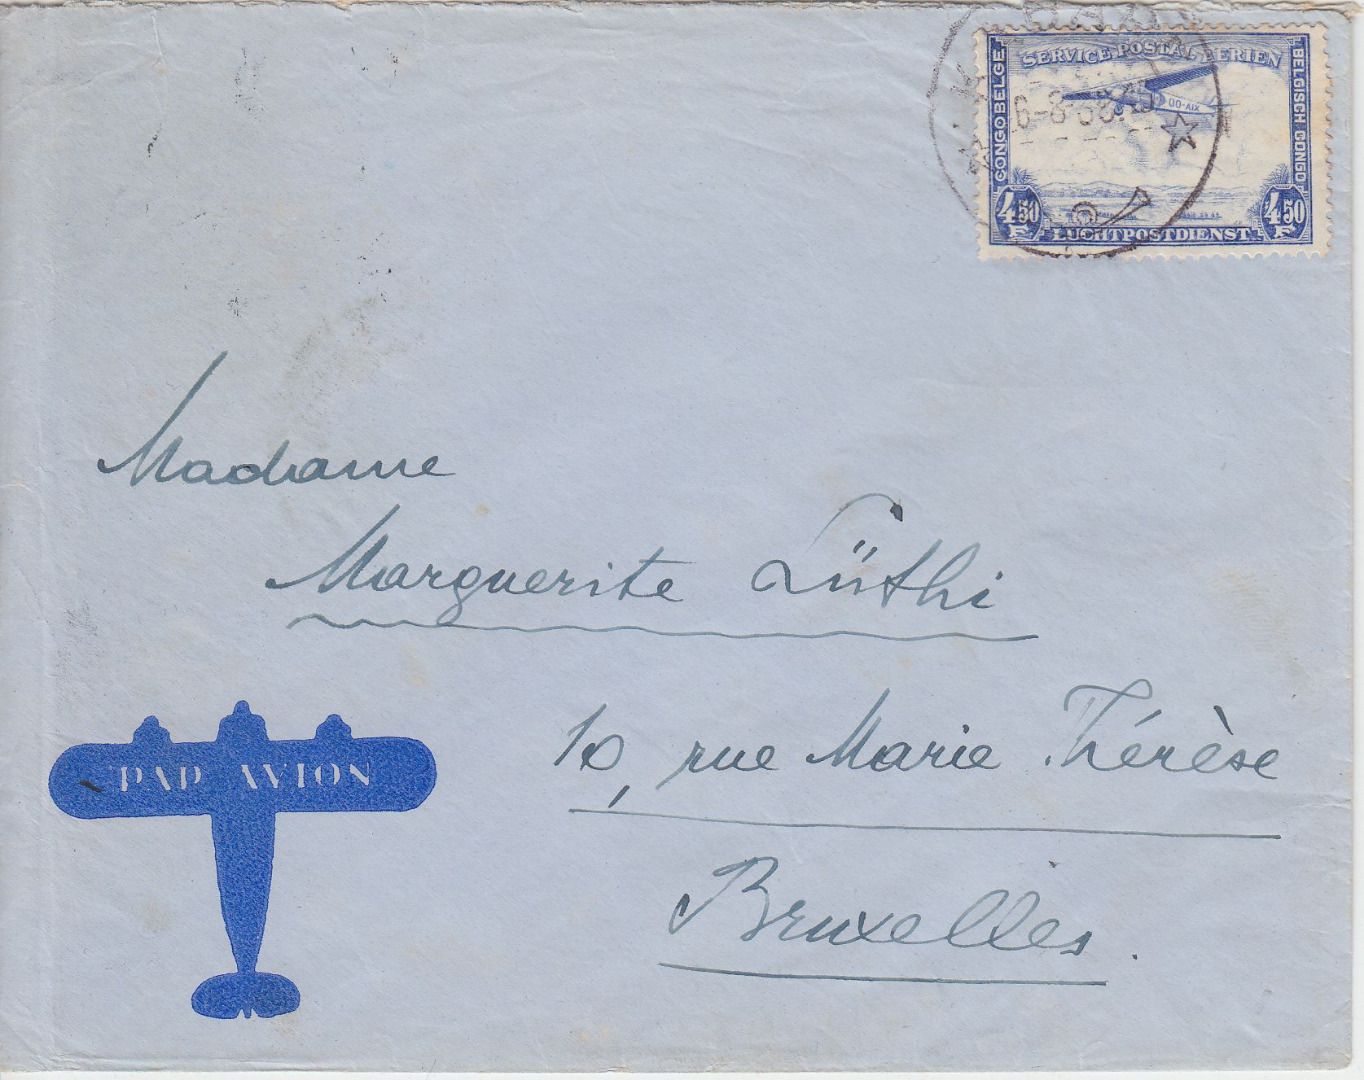 SERVICE POSTAL AERIEN
CONGO BELGE
BELGISCH CONGO
OO-AIX
6-8-38
4.50 F
4.50 F
LUCHTPOSTDIENST
Madame
Marguerite Lüthi
10, rue Marie Thérèse
Bruxelles.
PAR AVION